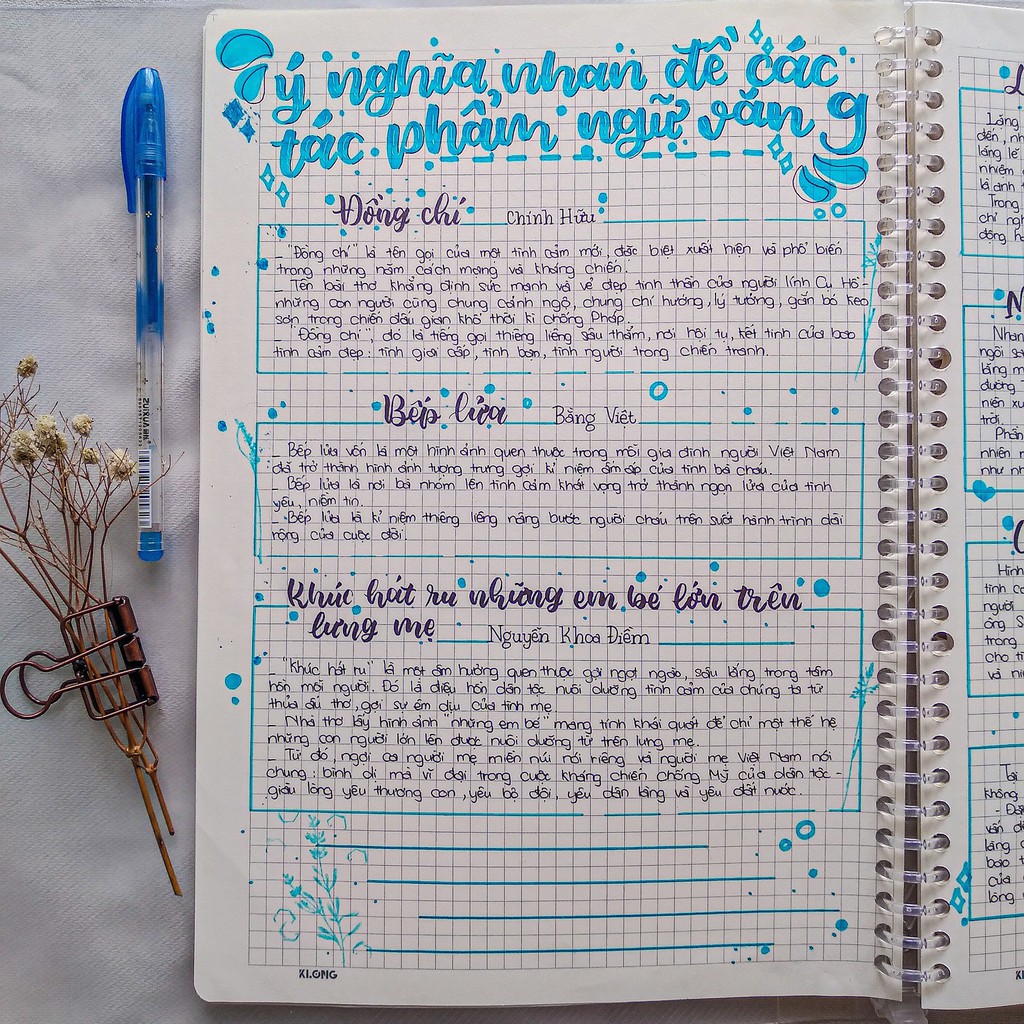 ý nghĩa nhan đề các
tác phẩm ngữ văn 9
Đồng chí Chính Hữu
- "Đồng chí" là tên gọi của một tình cảm mới, đặc biệt xuất hiện và phổ biến
trong những năm cách mạng và kháng chiến.
- Tên bài thơ khẳng định sức mạnh và vẻ đẹp tinh thần của người lính Cụ Hồ -
những con người cùng chung cảnh ngộ, chung chí hướng, lý tưởng, gắn bó keo
sơn trong chiến đấu gian khổ thời kì chống Pháp.
- "Đồng chí", đó là tiếng gọi thiêng liêng sâu thẳm, nơi hội tụ, kết tinh của bao
tình cảm đẹp: tình giai cấp, tình bạn, tình người trong chiến tranh.
Bếp lửa Bằng Việt
- Bếp lửa vốn là một hình ảnh quen thuộc trong mỗi gia đình người Việt Nam
đã trở thành hình ảnh tượng trưng gợi kỉ niệm ấm áp của tình bà cháu.
- Bếp lửa là nơi bà nhóm lên tình cảm khát vọng trở thành ngọn lửa của tình
yêu, niềm tin.
- Bếp lửa là kỉ niệm thiêng liêng nâng bước người cháu trên suốt hành trình dài
rộng của cuộc đời.
Khúc hát ru những em bé lớn trên
lưng mẹ Nguyễn Khoa Điềm
- "Khúc hát ru" là một âm hưởng quen thuộc gợi ngọt ngào, sâu lắng trong tâm
hồn mỗi người. Đó là điệu hồn dân tộc nuôi dưỡng tình cảm của chúng ta từ
thủa ấu thơ, gợi sự êm dịu của tình mẹ.
- Nhà thơ lấy hình ảnh "những em bé" mang tính khái quát để chỉ một thế hệ
những con người lớn lên được nuôi dưỡng từ trên lưng mẹ.
- Từ đó, ngợi ca người mẹ miền núi nói riêng và người mẹ Việt Nam nói
chung: bình dị mà vĩ đại trong cuộc kháng chiến chống Mỹ của dân tộc -
giàu lòng yêu thương con, yêu bộ đội, yêu dân làng và yêu đất nước.
KLONG
Lặng
lặng lẽ
nhiệm
là anh
Trong
chỉ
động
Nhan
ngôi
lặng
đường
niên
trời.
Phần
nhiên
như
Hình
tình
người
ông S
trong
cho
và
Tại
không
vấn
làng
bao
của
lòng